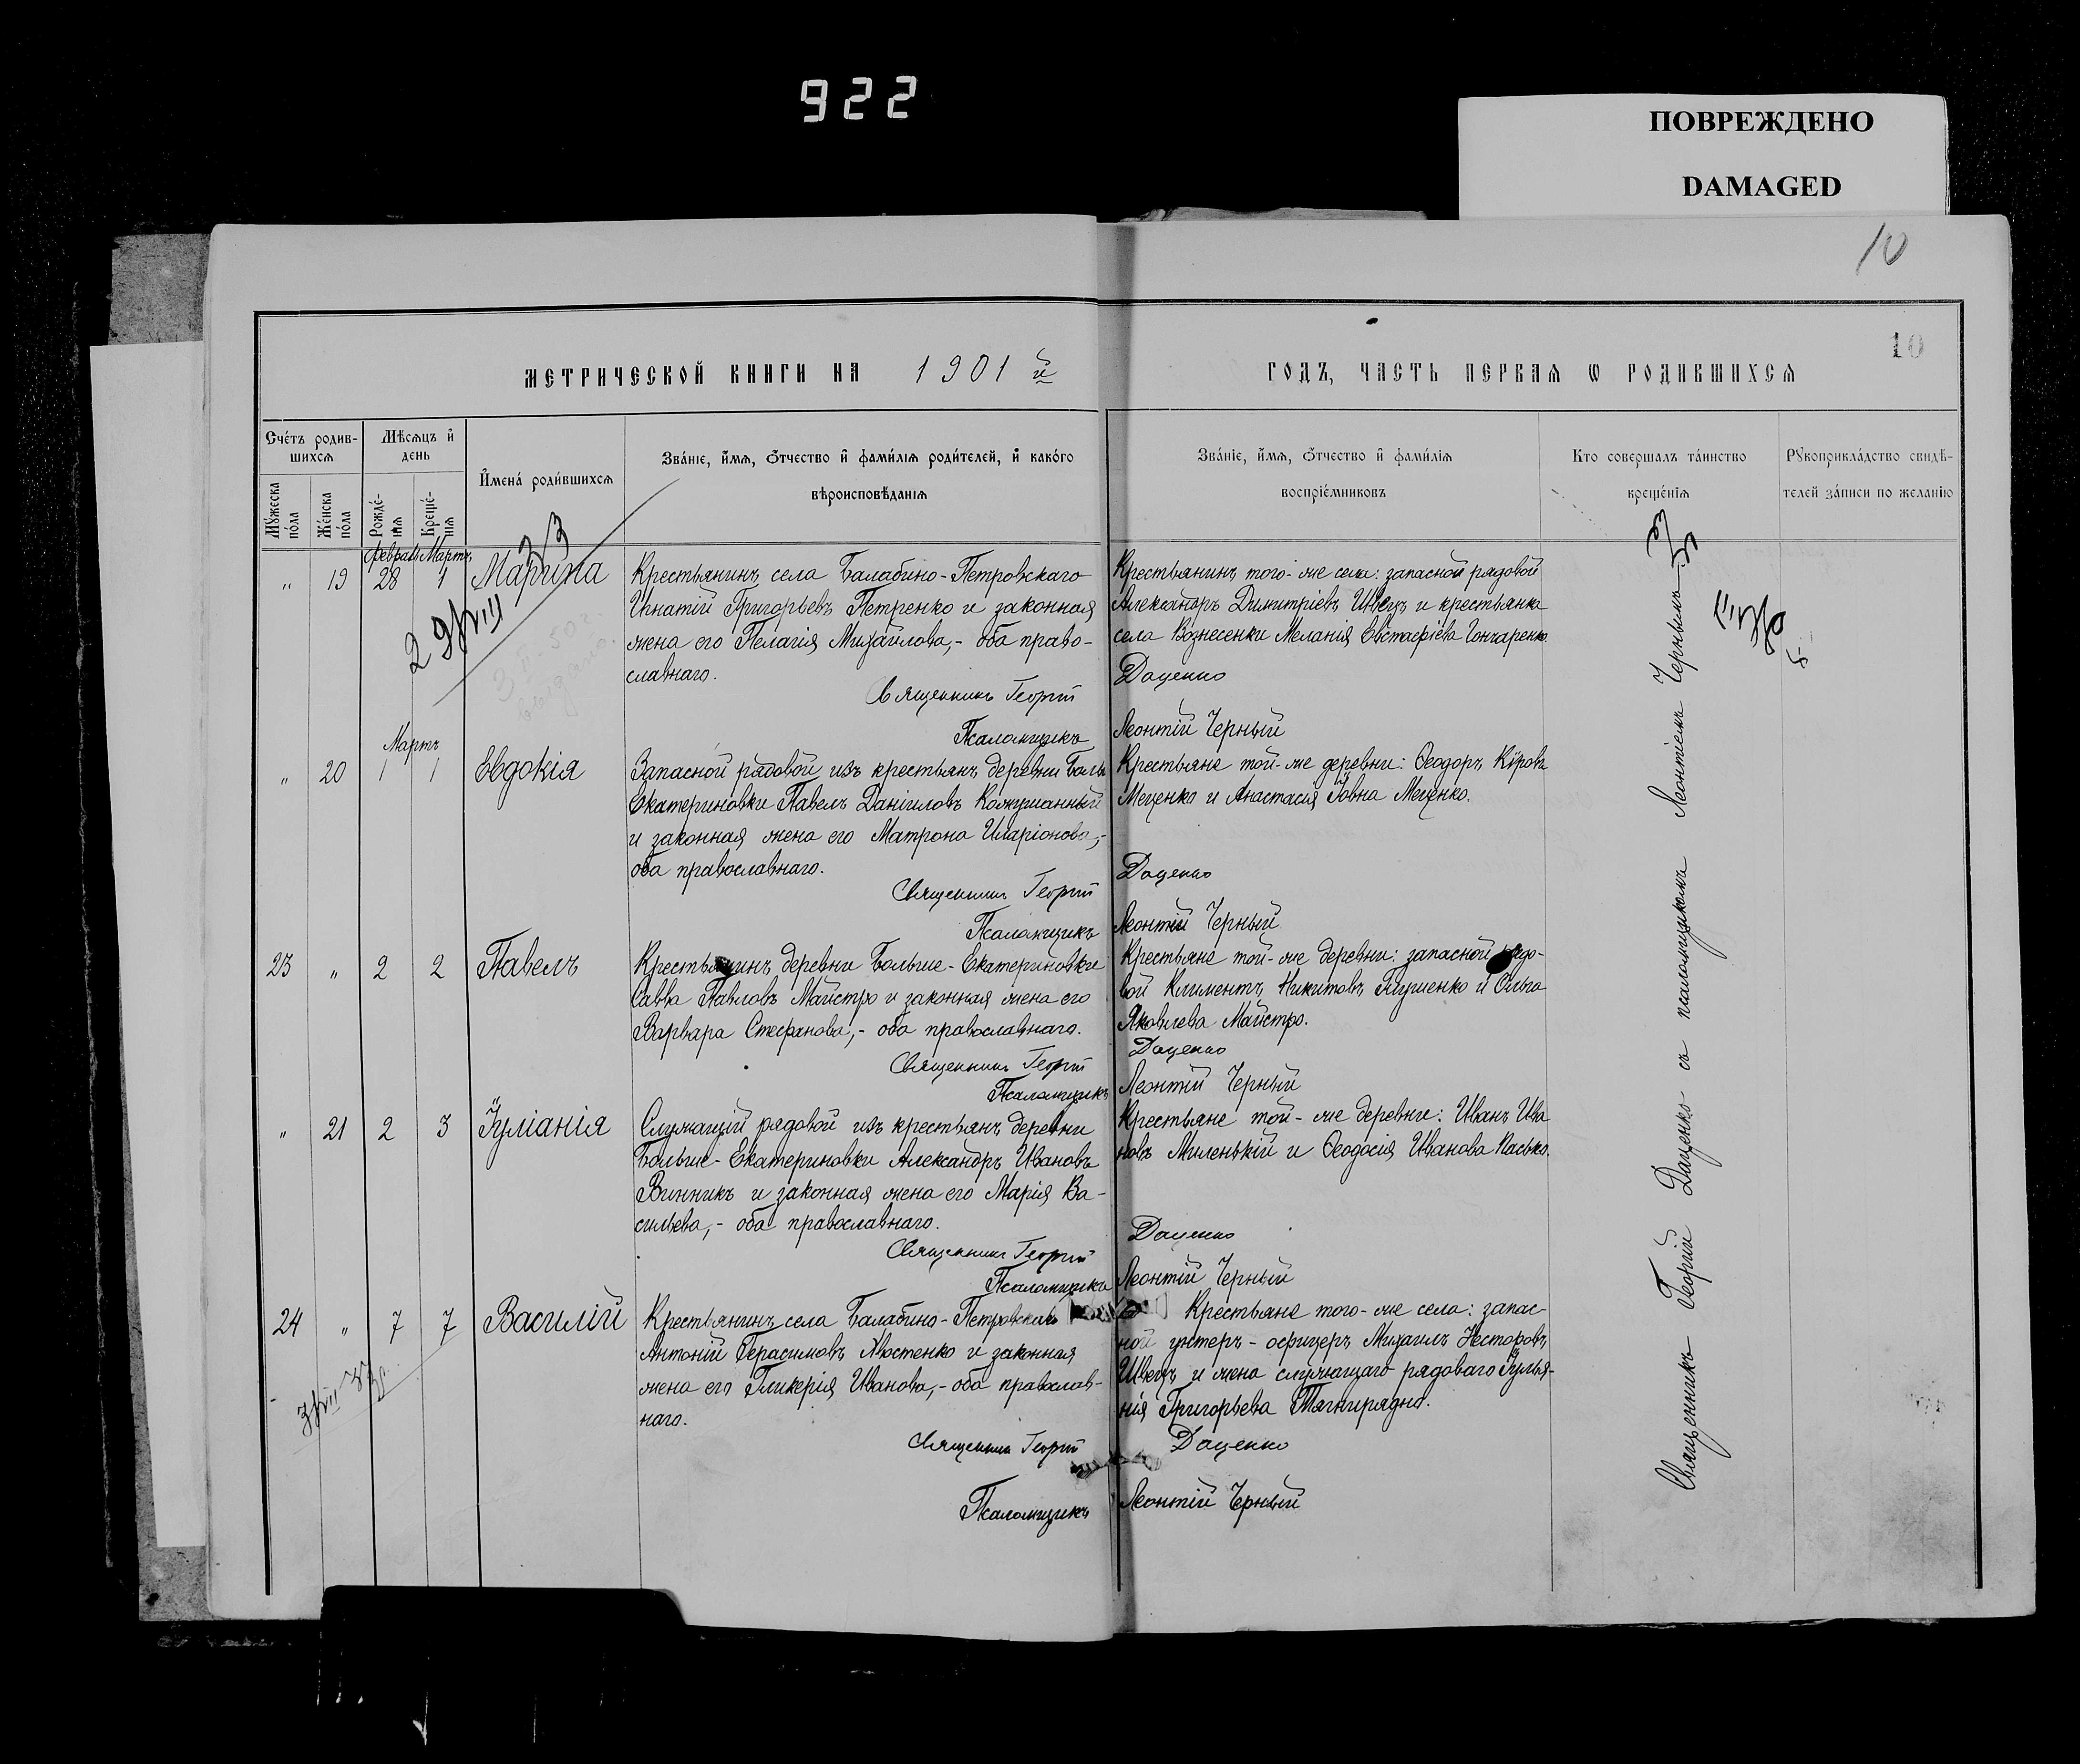 922
ПОВРЕЖДЕНО
DAMAGED
10
10
МЕТРИЧЕСКОЙ КНИГИ НА 1901 й
ГОДЪ, ЧАСТЬ ПЕРВАЯ Ѡ РОДИВШИХСЯ
Счéтъ родив-
шихся
Мѣсяцъ и҆
день
Мꙋ́жеска
пóла
Жéнска
пóла
Рождé-
нія
Крещé-
нія
И҆менá роди́вшихся
Звáніе, и҆́мя, ѻ҆́тчество и҆ фами́лія роди́телей, и҆ какóго
вѣроисповѣ́данія
Звáніе, и҆́мя, ѻ҆́тчество и҆ фами́лія
воспріéмниковъ
Кто совершалъ тáинство
крещéнія
Рꙋкоприклáдство свидѣ́-
телей зáписи по желáнію
Февраль Мартъ
„ 19 28 1 Марина
Крестьянинъ села Балабино-Петровскаго
Игнатій Григорьевъ Петренко и законная
жена его Пелагія Михайлова,- оба право-
славнаго.
Священникъ Георгій
Псаломщикъ
Крестьянинъ того-же села: запасной рядовой
Александръ Димитріевъ Швецъ и крестьянка
села Вознесенки Меланія Евстафіева Гончаренко.
Даценко
Леонтій Черный
Мартъ
„ 20 1 1 Евдокія
Запасной рядовой изъ крестьянъ деревни Больше
Екатериновки Павелъ Даніиловъ Кожушанный
и законная жена его Матрона Иларіонова,-
оба православнаго.
Священникъ Георгій
Псаломщикъ
Крестьяне той-же деревни: Ѳеодоръ Кѵровъ
Меценко и Анастасія Іовна Меценко.
Даценко
Леонтій Черный
23 „ 2 2 Павелъ
Крестьянинъ деревни Больше-Екатериновки
Савва Павловъ Майстро и законная жена его
Варвара Стефанова,- оба православнаго.
Священникъ Георгій
Псаломщикъ
Крестьяне той-же деревни: запасной рядо-
вой Климентъ Никитовъ Глушенко и Ольга
Яковлева Майстро.
Даценко
Леонтій Черный
„ 21 2 3 Іуліанія
Служащій рядовой изъ крестьянъ деревни
Больше-Екатериновки Александръ Ивановъ
Винникъ и законная жена его Марія Ва-
сильева,- оба православнаго.
Священникъ Георгій
Псаломщикъ
Крестьяне той-же деревни: Иванъ Ива
новъ Миленькій и Ѳеодосія Иванова Пасько.
Даценко
Леонтій Черный
24 „ 7 7 Василій
Крестьянинъ села Балабино-Петровскаго
Антоній Герасимовъ Хвостенко и законная
жена его Гликерія Иванова,- оба православ-
наго.
Священникъ Георгій
Псаломщикъ
Крестьяне того-же села: запас-
ной унтеръ-офицеръ Михаилъ Несторовъ
Швецъ и жена служащаго рядоваго Іулья-
нія Григорьева Тягнирядно.
Даценко
Леонтій Черный
Священникъ Георгій Даценко съ псаломщикомъ Леонтіемъ Чернымъ